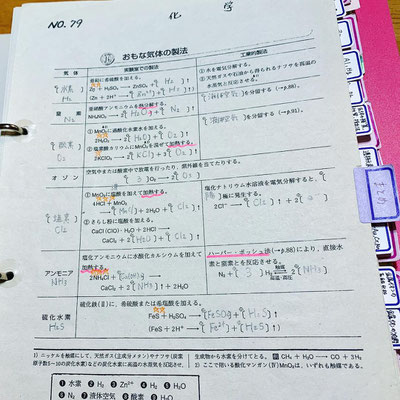 NO. 79
化 学
おもな気体の製法
気 体
実験室での製法
工業的製法
水素
H₂
亜鉛に希硫酸を加える。
Zn + H₂SO₄ → ZnSO₄ + H₂ ↑
(Zn + 2H⁺ → Zn²⁺ + H₂ ↑)
① 水を電気分解する。
② 天然ガスや石油から得られるナフサを高温の水蒸気と反応させる。
窒 素
N₂
亜硝酸アンモニウムを熱分解する。
NH₄NO₂ → 2 H₂O + N₂ ↑
液体空気 を分留する(→p.88)。
酸素
O₂
① MnO₂に過酸化水素水を加える。
2H₂O₂ → 2 H₂O + O₂ ↑
② 塩素酸カリウムにMnO₂を混ぜて加熱する。
2KClO₃ → 2 KCl + 3 O₂ ↑
液体空気 を分留する(→p.91)。
オ ゾ ン
空気または酸素中で放電を行ったり、紫外線を当てたりする。
3 O₂ → 2 O₃
塩素
Cl₂
① MnO₂に塩酸を加えて加熱する。
4HCl + MnO₂
→ MnCl₂ + 2H₂O + Cl₂ ↑
② さらし粉に塩酸を加える。
CaCl(ClO)・H₂O + 2HCl →
CaCl₂ + 2 H₂O + Cl₂ ↑
塩化ナトリウム水溶液を電気分解すると、陽極に発生する。
2Cl⁻ → Cl₂ ↑ + 2 e⁻
アンモニア
NH₃
塩化アンモニウムに水酸化カルシウムを加えて加熱する。
2NH₄Cl + Ca(OH)₂ →
CaCl₂ + 2 NH₃ ↑ + 2H₂O
ハーバー・ボッシュ法(→p.88)により、直接水素と窒素とを反応させる。
N₂ + 3 H₂ 触媒 高温・高圧 2 NH₃
硫化水素
H₂S
硫化鉄(Ⅱ)に、希硫酸または希塩酸を加える。
FeS + H₂SO₄ → FeSO₄ + H₂S ↑
(FeS + 2H⁺ → Fe²⁺ + H₂S ↑)
1) ニッケルを触媒にして、天然ガス(主成分メタン)やナフサ(炭素原子数5~10の炭化水素)などの炭化水素に高温の水蒸気を反応させ、
生成物から水素を分けてとる。 例 CH₄ + H₂O → CO + 3H₂
2) ここで用いる酸化マンガン(Ⅳ)MnO₂は、いずれも触媒である。
❶ 水素 ❷ H₂ ❸ Zn²⁺ ❹ H₂ ❺ H₂O
❻ N₂ ❼ 液体空気 ❽ 酸素 ❾ H₂O
まとめ